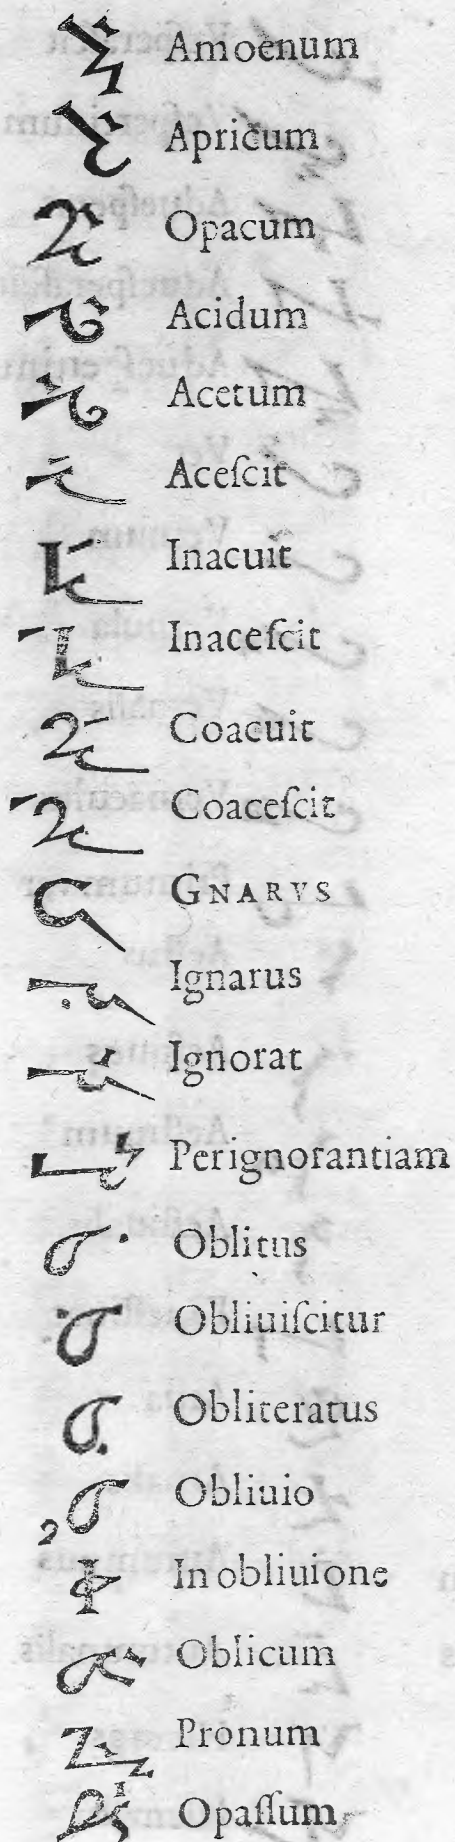 Amoenum
Apricum
Opacum
Acidum
Acetum
Aceſcit
Inacuit
Inaceſcit
Coacuit
Coaceſcit
GNARVS
Ignarus
Ignorat
Perignorantiam
Oblitus
Obliuiſcitur
Obliteratus
Obliuio
In obliuione
Oblicum
Pronum
Opaſſum